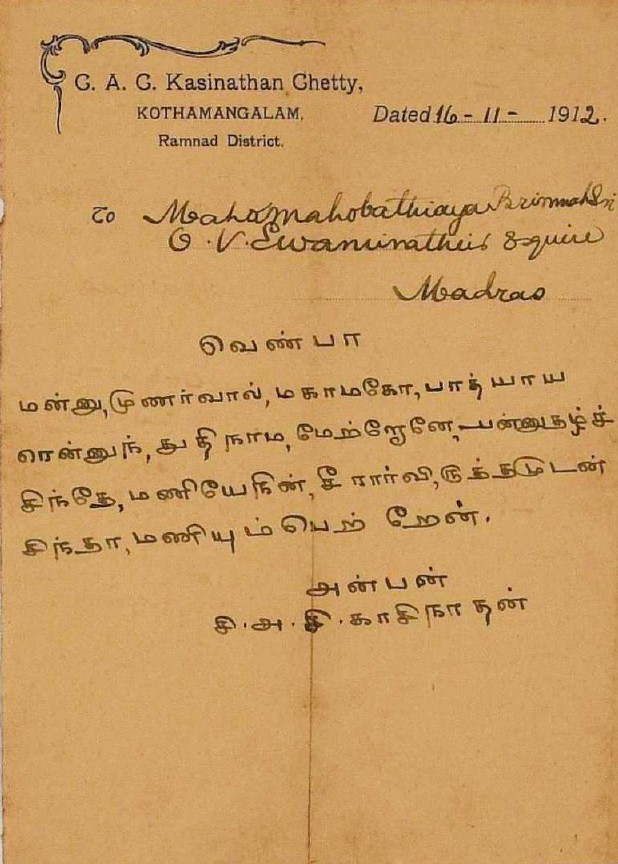 C. A. C. Kasinathan Chetty,
KOTHAMANGALAM,
Ramnad District.
Dated 16-11-1912.
To Mahamahobathiaya Brimmah Sri
O. V. Swaminatheir Esquire
Madras
வெண்பா
மன்னு,முணர்வால், மகாமகோ, பாத் யாய
ரென்னுந், துதி நாம, மேற்றோனே, பன்னுதமிழ்ச்
சிந்தே, மணியேநின், சீ ரார்வி,ருத்தமுடன்
சிந்தா,மணியு ம்பெற் றேன்.
அன்பன்
சி. அ. சி. காசிநாதன்